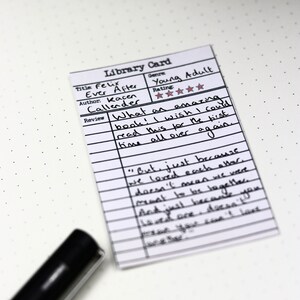 Library Card
Title Felix
Ever After
Author Kacen
Callender
Genre
Young Adult
Rating
Review
What an amazing
book! I wish I could
read this for the first
time all over again.
"But, just because
we loved each other
doesn't mean we were
meant to be together.
And just because you
loved one, doesn't
mean you can't love
another."